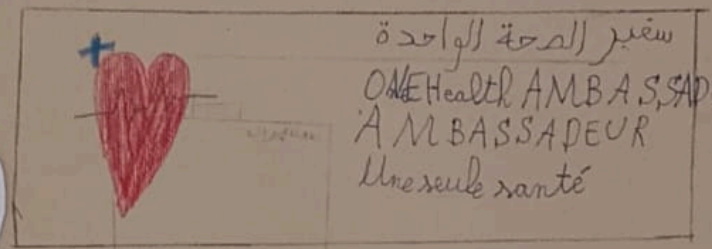 سفير الصحة الواحدة
ONEHealth AMBASSAD
AMBASSADEUR
Une seule santé